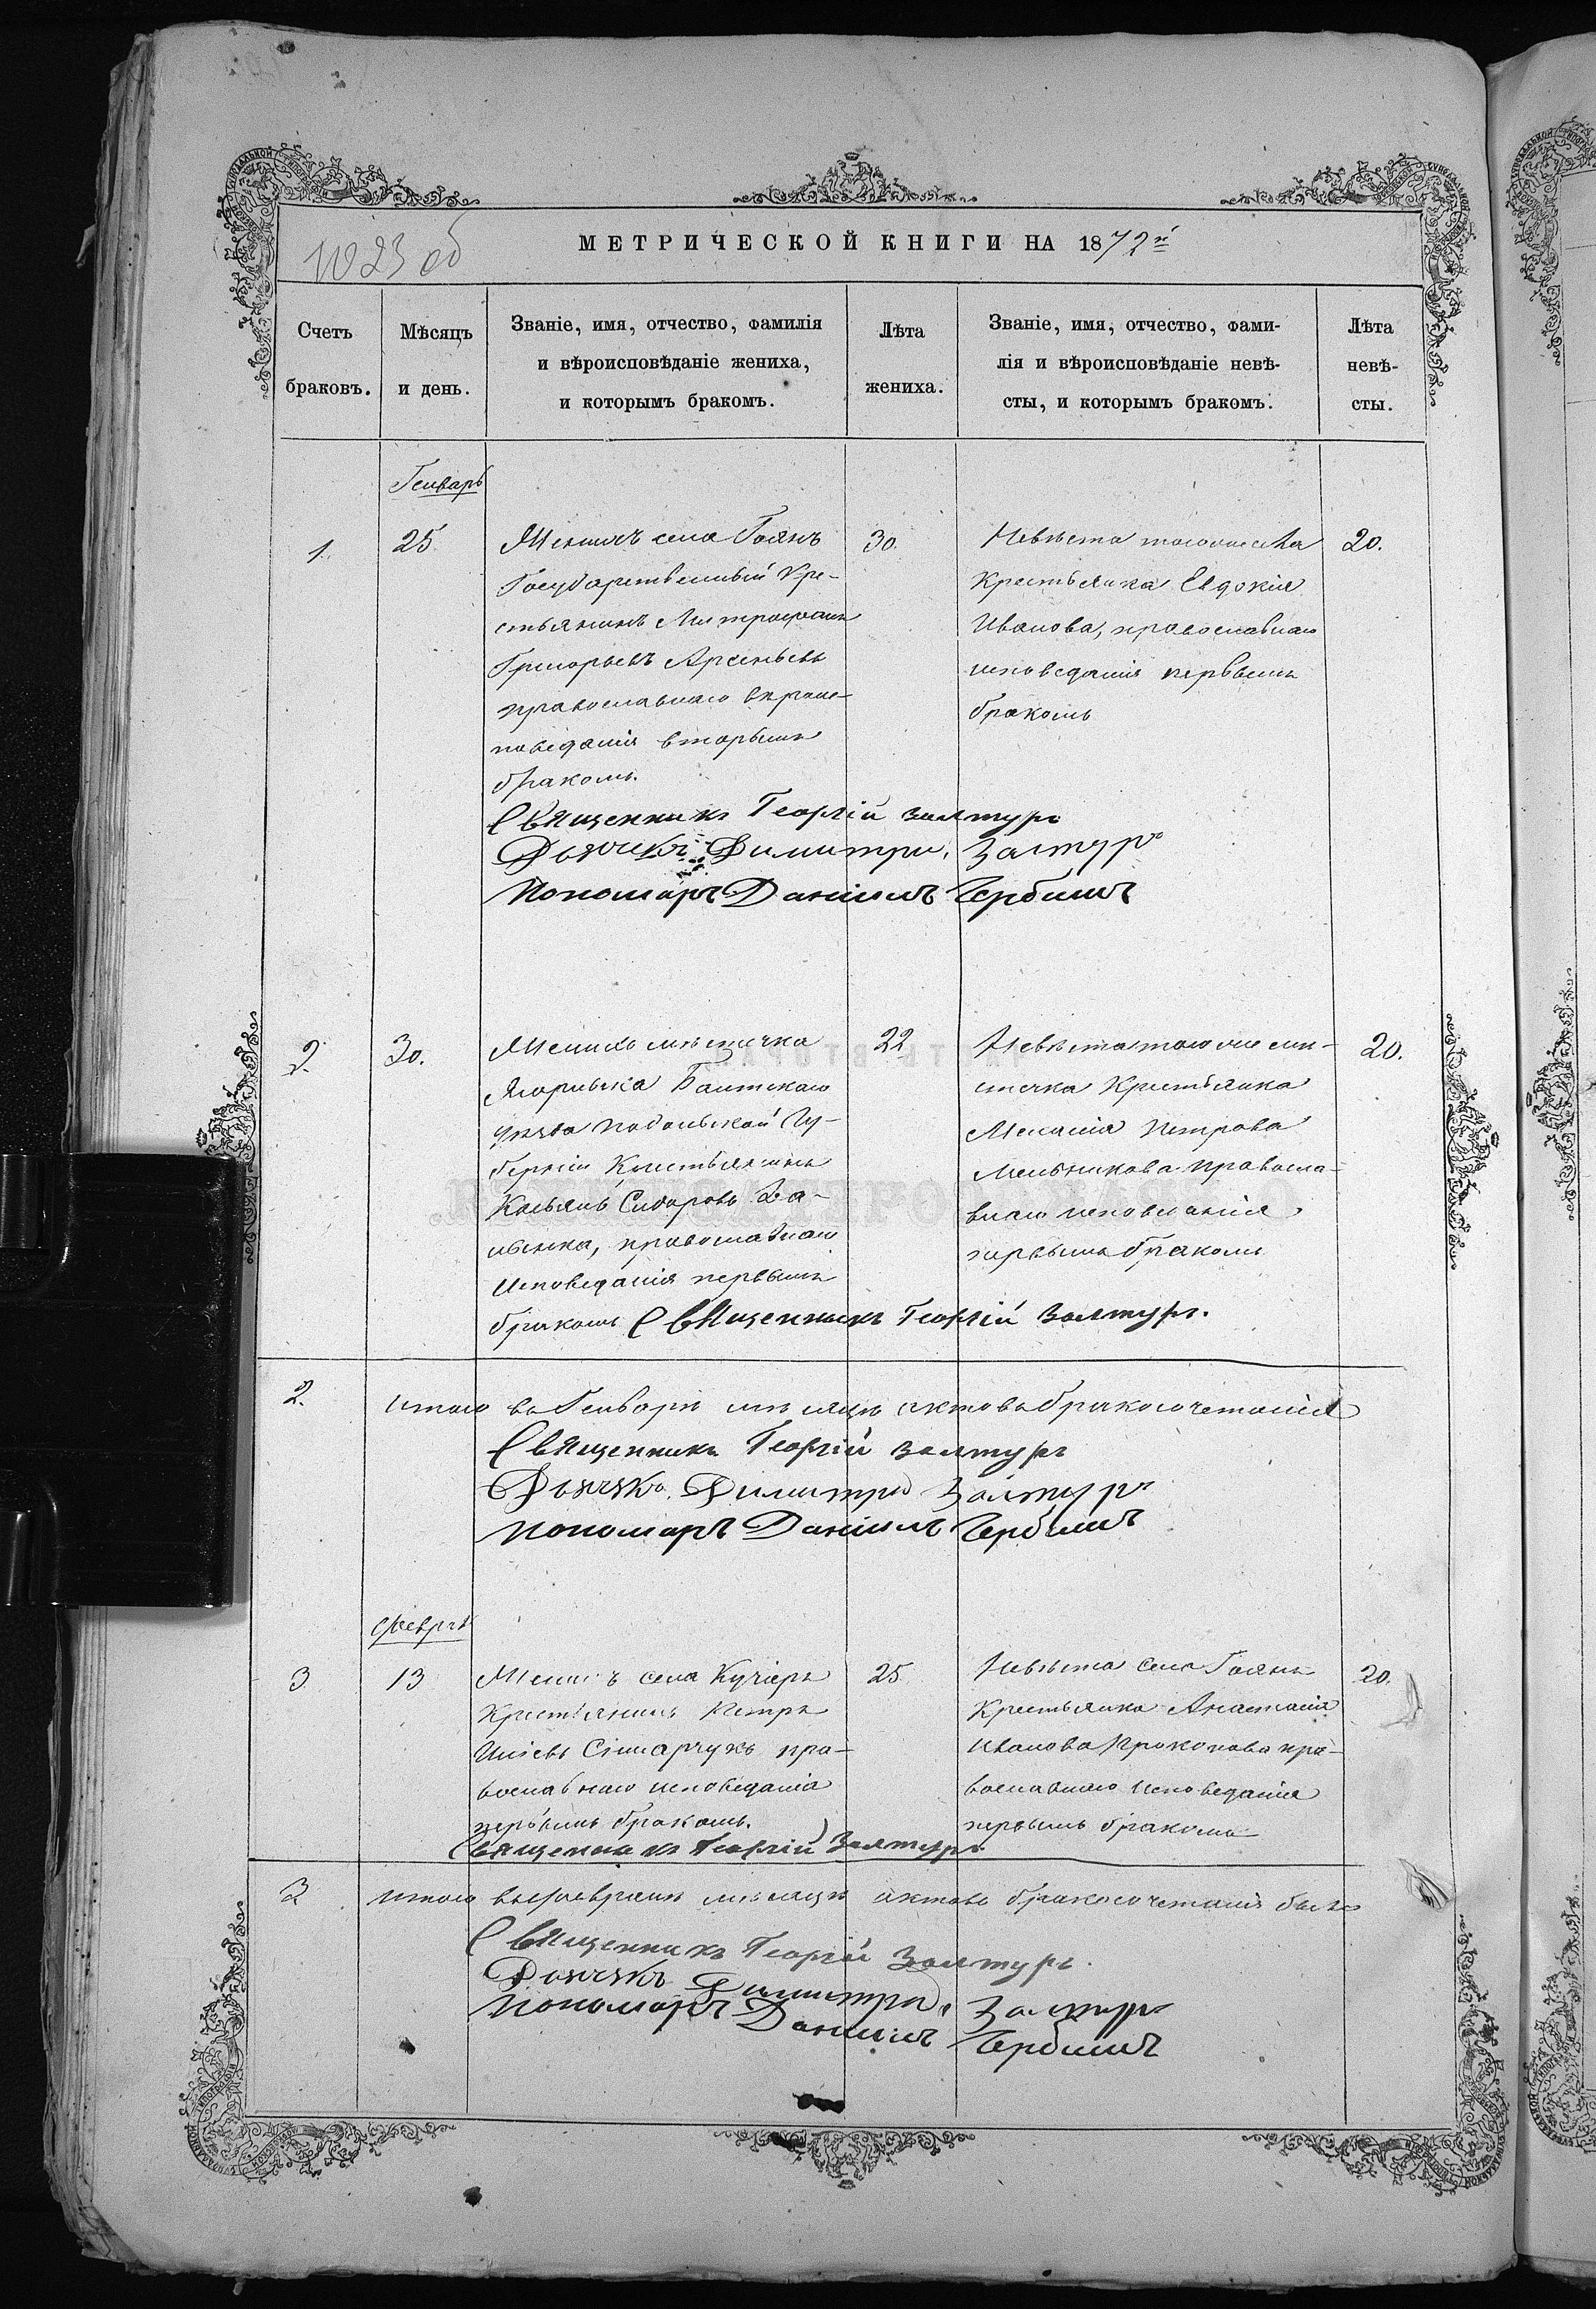 1023 об
МЕТРИЧЕСКОЙ КНИГИ НА 1872й
Счетъ браковъ.
Мѣсяцъ и день.
Званіе, имя, отчество, фамилія
и вѣроисповѣданіе жениха,
и которымъ бракомъ.
Лѣта жениха.
Званіе, имя, отчество, фами-
лія и вѣроисповѣданіе невѣ-
сты, и которымъ бракомъ.
Лѣта невѣ-
сты.
Генварь
1.
25
Женихъ села Гоянъ
Государственный кре-
стьянинъ Митрофанъ
Григорьевъ Арсеньевъ
православнаго вѣроис-
поведанія вторымъ
бракомъ.
30.
Невѣста тогоже села
Крестьянка Евдокія
Иванова, православнаго
исповеданія первымъ
бракомъ
20.
Священникъ Георгій Залтуръ
Дьячекъ Димитрій Залтуръ
Пономаръ Даніилъ Чербулъ
2.
30.
Женихъ мѣстечка
Ягорлыка Балтскаго
уѣзда Подольской Гу-
берніи Крестьянинъ
Касьянъ Сидоровъ
православнаго
Исповеданія первымъ
бракомъ
22
Невѣста того же мѣ-
стечка Крестьянка
Меланія Петрова
Мельникова правосла-
внаго исповеданія
первымъ бракомъ
20.
Священникъ Георгій Залтуръ.
2.
итого въ Генварѣ мѣсяцѣ актовъ бракосочетанія
Священникъ Георгій Залтуръ
Дьячекъ Димитрій Залтуръ
Пономаръ Даніилъ Чербулъ
Февраль
3
13
Женихъ села Кучіеръ
Крестьянинъ Петръ
Иліевъ Сімарчукъ пра-
вославнаго исповеданія
первымъ бракомъ.
25
Невѣста села Гоянъ
Крестьянка Анастасія
Иванова Прокопова пра-
вославнаго исповеданія
первымъ бракомъ
20.
Священникъ Георгій Залтуръ.
3
итого въ Февралѣ мѣсяцѣ актовъ бракосочетанія было
Священникъ Георгій Залтуръ.
Дьячекъ Димитрій Залтуръ
Пономаръ Даніилъ Чербулъ